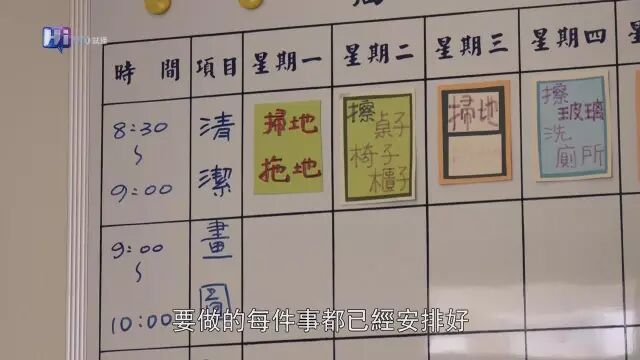 Hi
試播
時間 項目 星期一 星期二 星期三 星期四
8:30
～
9:00
清
潔
掃地
拖地
擦
桌子
椅子
櫃子
掃地
擦
玻璃
洗
廁所
9:00
～
10:00
畫
圖
要做的每件事都已經安排好